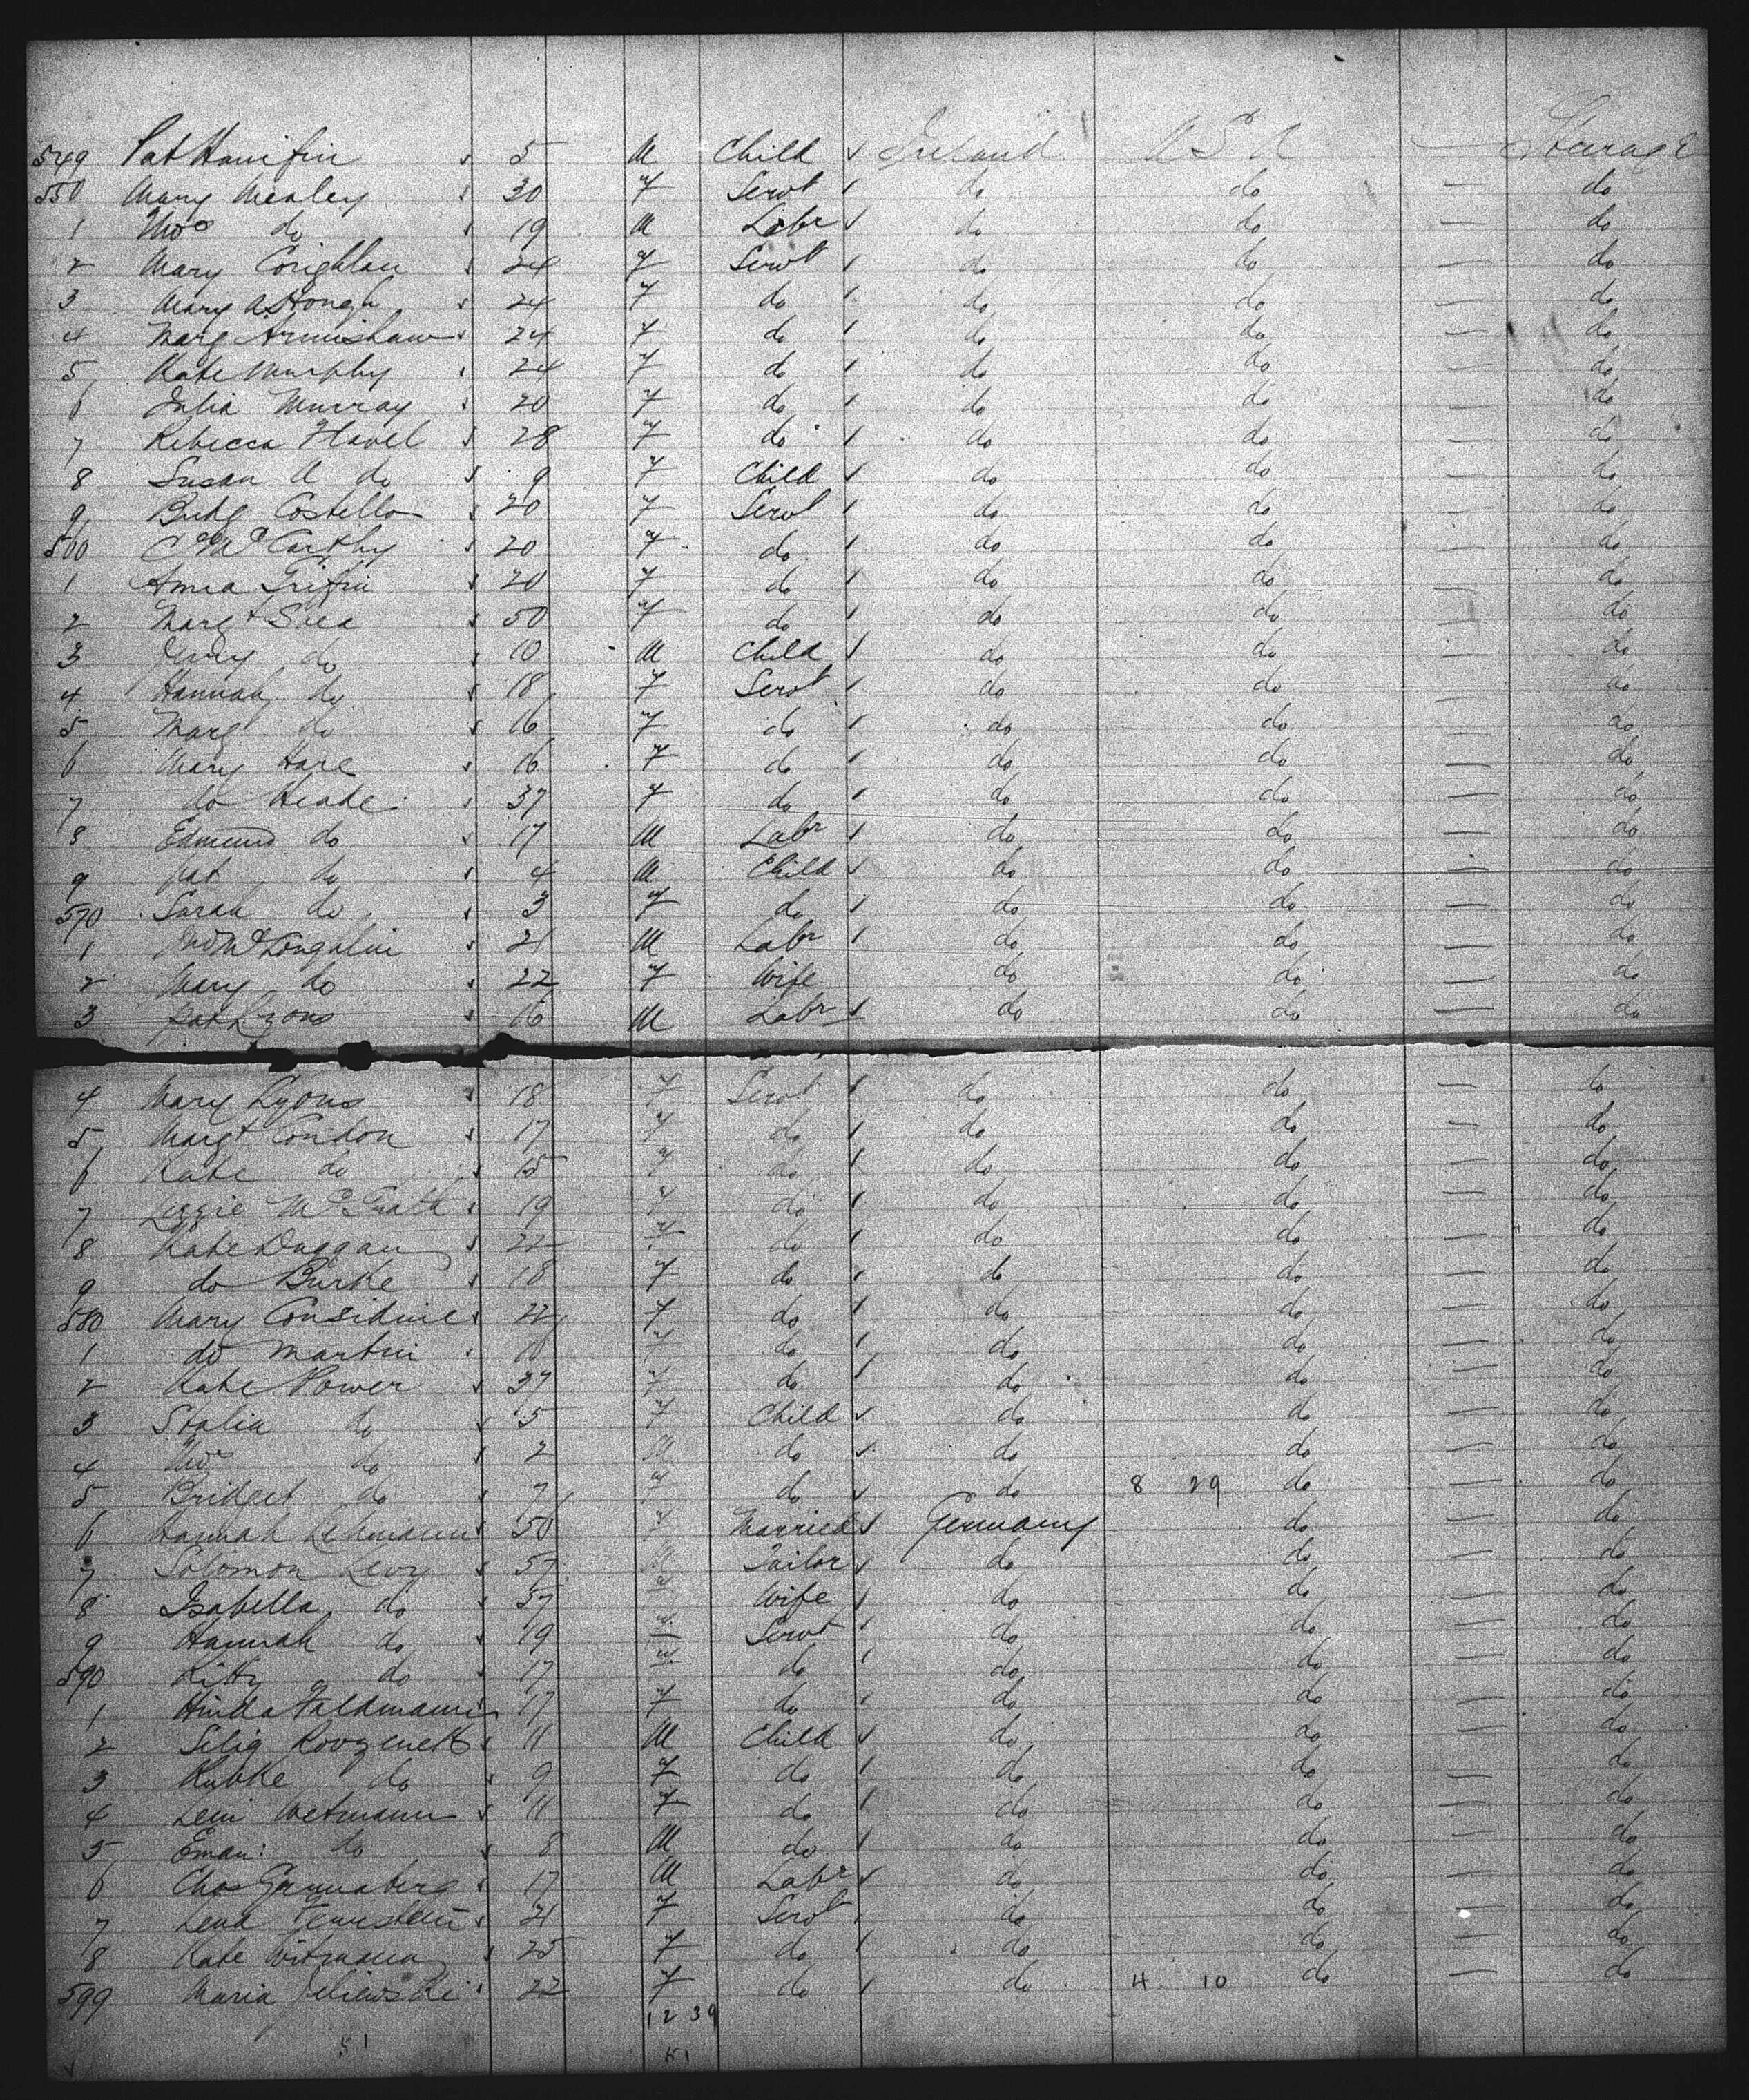 549 Pat Hanifin 5 M Child Ireland U S A — Steerage
550 Mary Mealey 30 F Servt do do — do
1 Thos do 19 M Labr do do — do
2 Mary Coughlan 24 F Servt do do — do
3 Mary A Hough 24 F do do do — do
4 Marg Armishaw 24 F do do do — do
5 Kate Murphy 24 F do do do — do
6 Julia Murray 20 F do do do — do
7 Rebecca Flavel 28 F do do do — do
8 Susan A do 9 F Child do do — do
9 Bridg Costello 20 F Servt do do — do
560 McCarthy 20 F do do do — do
1 Griffin 20 F do do do — do
2 Margt Shea 50 F do do do — do
3 Jerry do 10 M Child do do — do
4 Hannah do 18 F Servt do do — do
5 Margt do 16 F do do do — do
6 Mary Hare 16 F do do do — do
7 do Heade 37 F do do do — do
8 Edmund do 17 M Labr do do — do
9 Pat do 4 M Child do do — do
570 Sarah do 3 F do do do — do
1 Jno McLoughlin 21 M Labr do do — do
2 Mary do 22 F Wife do do — do
3 Pat Lyons 16 M Labr do do — do
4 Mary Lyons 18 F Servt do do — do
5 Margt Condon 17 F do do do — do
6 Kate do 15 F do do do — do
7 Lizzie McGrath 19 F do do do — do
8 Kate Duggan 22 F do do do — do
9 do Burke 18 F do do do — do
580 Mary Considine 22 F do do do — do
1 do Martin 18 F do do do — do
2 Kate Power 37 F do do do — do
3 Stalia do 5 F Child do do — do
4 do 2 M do do do — do
5 Bridget do 7 F do do 8 29 do — do
6 Hannah Lehmann 50 F Married Germany do — do
7 Solomon Levy 57 M Tailor do do — do
8 Isabella do 57 F Wife do do — do
9 Hannah do 19 F Servt do do — do
590 Kitty do 17 F do do do — do
1 Hinda Faldmann 17 F do do do — do
2 Selig 11 M Child do do — do
3 do 9 F do do do — do
4 Wetmann 11 F do do do — do
5 Eman: do 8 M do do do — do
6 Chas 17 M Labr do do — do
7 Lena 21 F Servt do do — do
8 Kate Witmann 25 F do do do — do
599 Maria 22 F do do 4 10 do — do
12 39
51 51